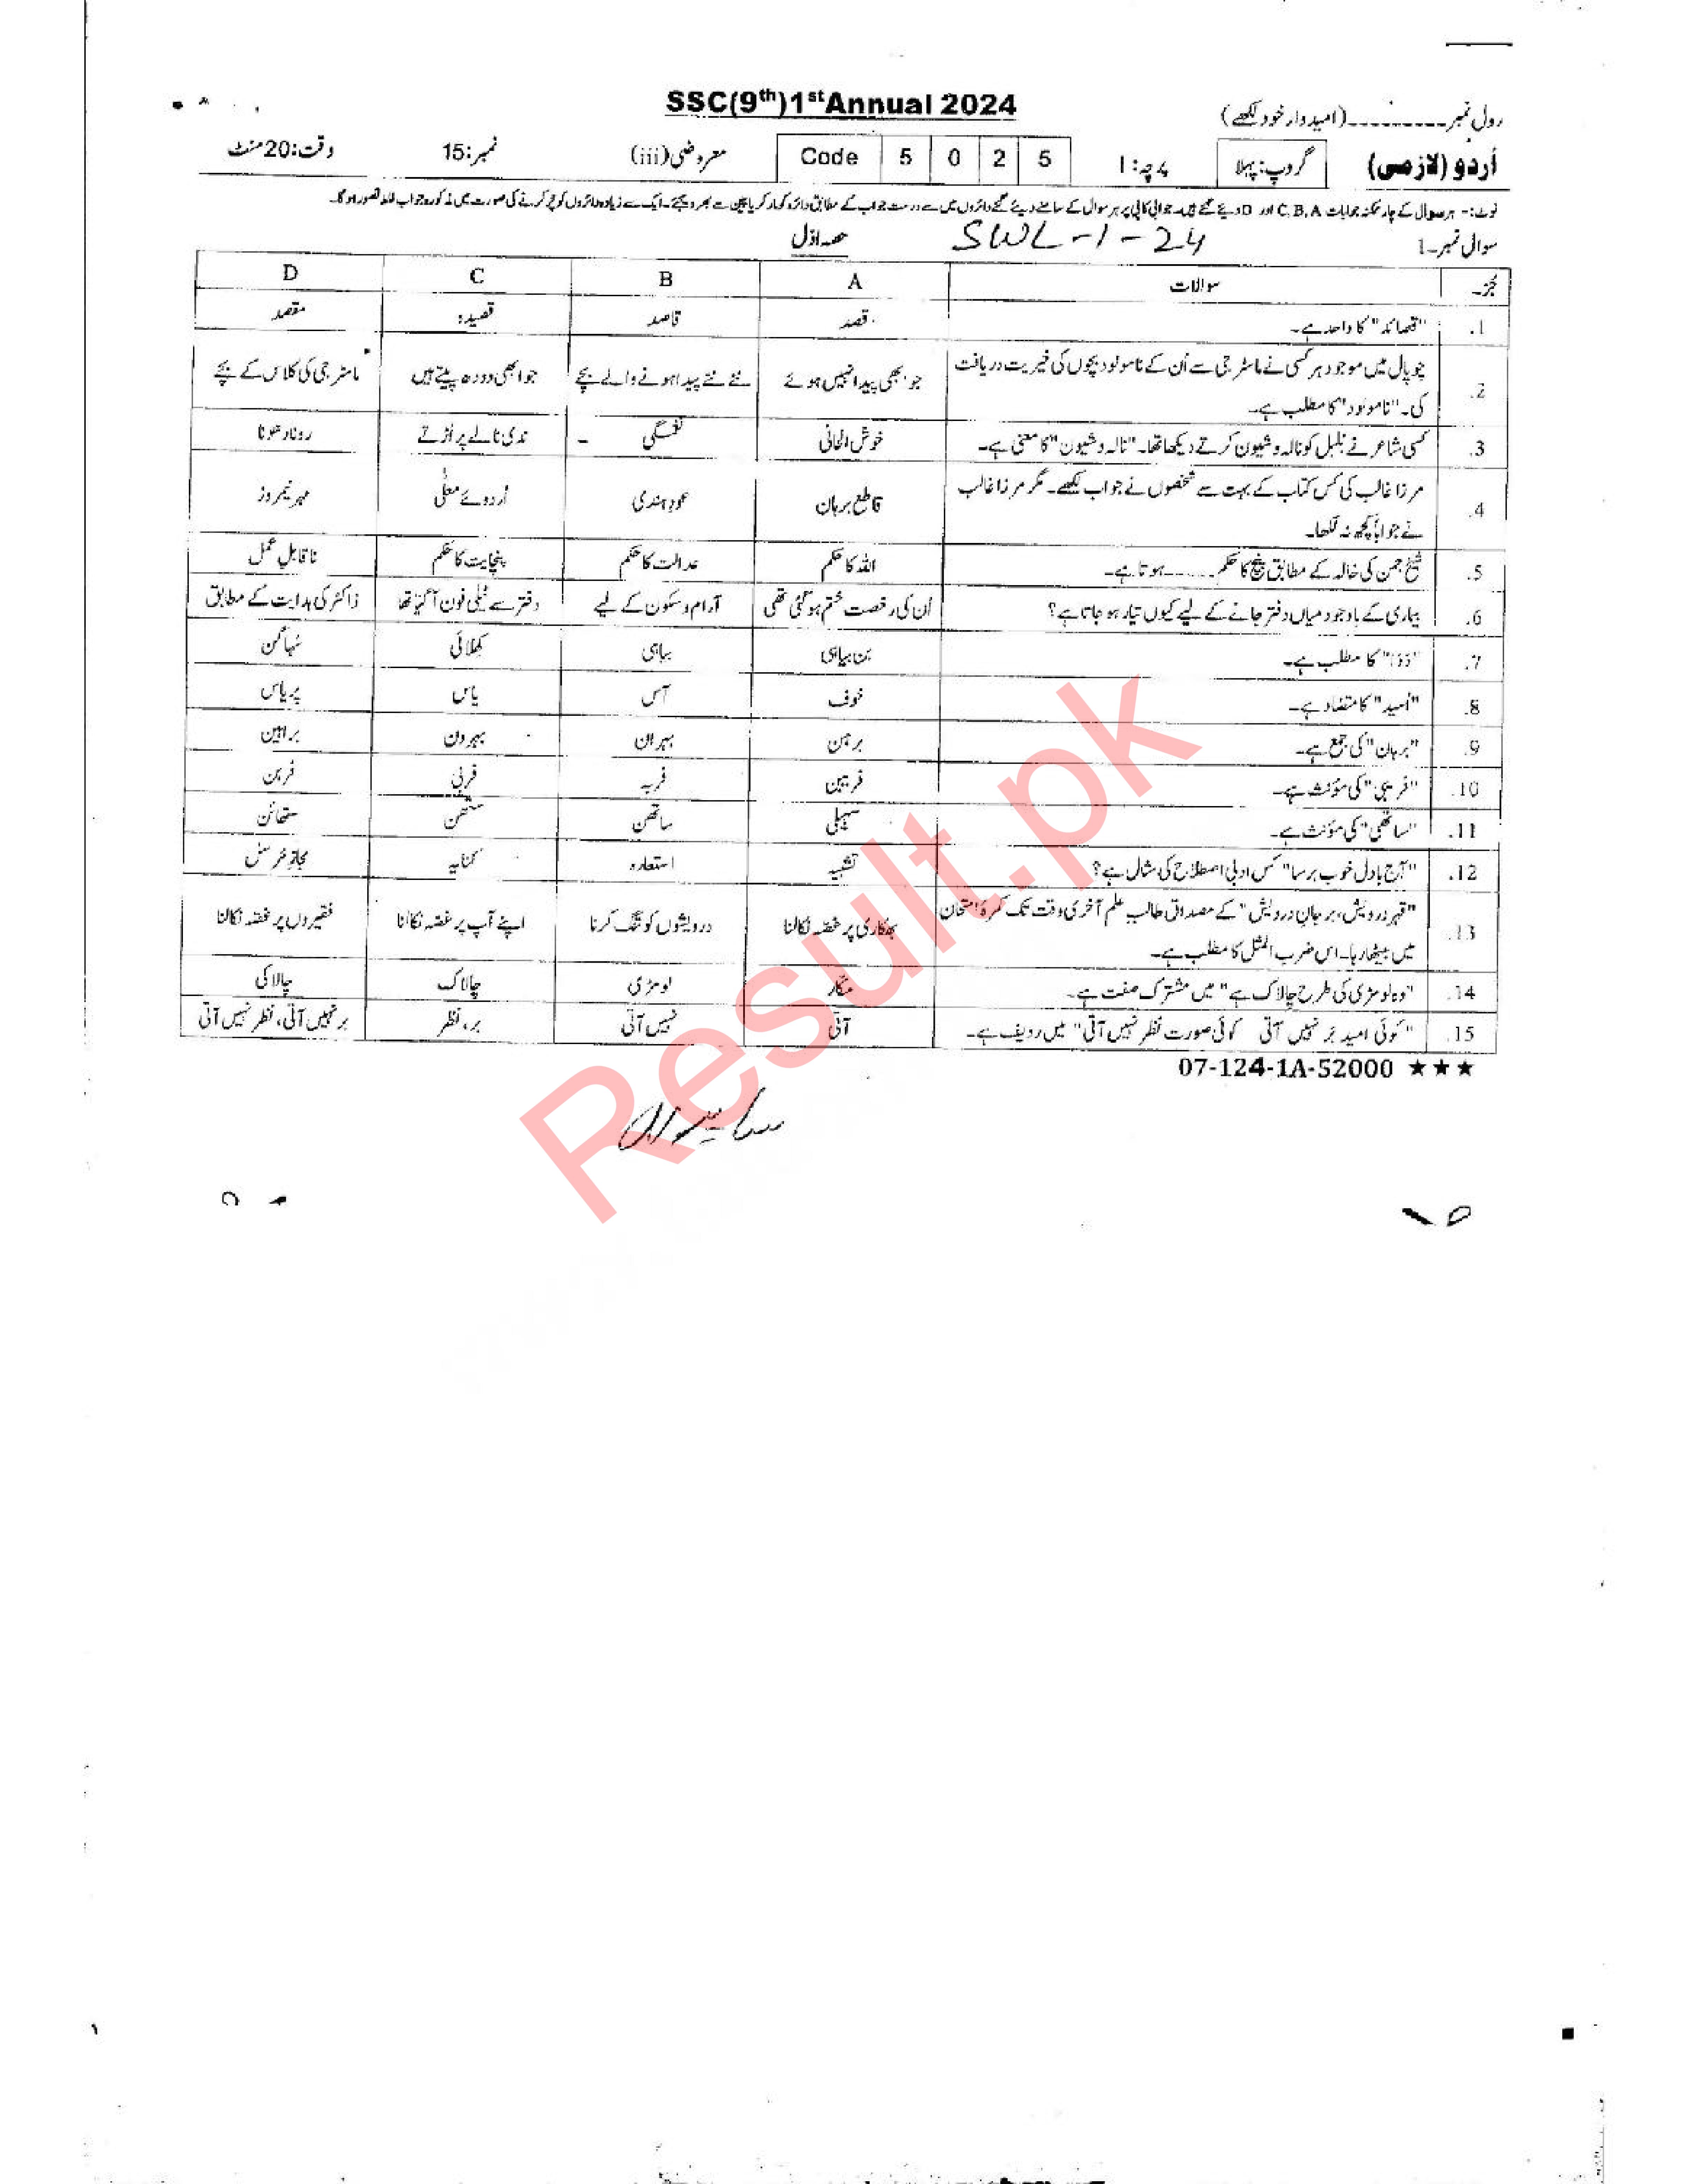 SSC(9th)1st Annual 2024
رول نمبر ---------- (امیدوار خود لکھے)
اُردو (لازمی) گروپ: پہلا پرچہ: I Code 5 0 2 5 معروضی (iii) نمبر: 15 وقت: 20 منٹ
نوٹ:- ہر سوال کے چار ممکنہ جوابات C, B, A اور D دیئے گئے ہیں۔ جوابی کاپی پر ہر سوال کے سامنے دیئے گئے دائروں میں سے درست جواب کے مطابق دائرہ کو مارکر یا پین سے بھر دیجئے۔ ایک سے زیادہ دائروں کو پُر کرنے کی صورت میں مذکورہ جواب غلط تصور ہو گا۔
سوال نمبر-1 SWL-1-24 حصہ اوّل
جُز۔ سوالات A B C D
1. "قصائد" کا واحد ہے۔ قصد قاصد قصیدہ مقصد
2. چوپال میں موجود ہر کسی نے ماسٹر جی سے اُن کے نامولود بچوں کی خیریت دریافت کی۔ "نامولود" کا مطلب ہے۔ جو ابھی پیدا نہیں ہوئے نئے نئے پیدا ہونے والے بچے جو ابھی دودھ پیتے ہیں ماسٹر جی کی کلاس کے بچے
3. کسی شاعر نے بُلبل کو نالہ و شیون کرتے دیکھا تھا۔ "نالہ و شیون" کا معنی ہے۔ خوش الحانی نغمگی ندی نالے پر اُڑتے رونا دھونا
4. مرزا غالب کی کس کتاب کے بہت سے شخصوں نے جواب لکھے۔ مگر مرزا غالب نے جواباً کچھ نہ لکھا۔ قاطع برہان عود ہندی اُردوئے معلّٰی مہر نیمروز
5. شیخ جمن کی خالہ کے مطابق پنچ کا حکم ........ ہوتا ہے۔ اللہ کا حکم عدالت کا حکم پنچایت کا حکم ناقابلِ عمل
6. بیماری کے باوجود میاں دفتر جانے کے لیے کیوں تیار ہو جاتا ہے؟ اُن کی رخصت ختم ہو گئی تھی آرام و سکون کے لیے دفتر سے ٹیلی فون آ گیا تھا ڈاکٹر کی ہدایت کے مطابق
7. "دَدَا" کا مطلب ہے۔ بن بیاہی بیاہی کھلائی سُہاگن
8. "اُمید" کا متضاد ہے۔ خوف آس یاس پریاس
9. "برہان" کی جمع ہے۔ برہن بہران بہروں براہین
10. "فریبی" کی مؤنث ہے۔ فریبن فربہ فربی فربن
11. "ساتھی" کی مؤنث ہے۔ سہیلی ساتھن ستھن ستھائن
12. "آج بادل خوب برسا" کس ادبی اصطلاح کی مثال ہے؟ تشبیہ استعارہ کنایہ مجاز مرسل
13. "قہرِ درویش، بر جانِ درویش" کے مصداق طالب علم آخری وقت تک کمرۂ امتحان میں بیٹھا رہا۔ اس ضرب المثل کا مطلب ہے۔ بھکاری پر غصہ نکالنا درویشوں کو تنگ کرنا اپنے آپ پر غصہ نکالنا فقیروں پر غصہ نکالنا
14. "وہ لومڑی کی طرح چالاک ہے" میں مشترک صفت ہے۔ مکّار لومڑی چالاک چالاکی
15. "کوئی امید بر نہیں آتی کوئی صورت نظر نہیں آتی" میں ردیف ہے۔ آتی نہیں آتی بر، نظر بر نہیں آتی، نظر نہیں آتی
07-124-1A-52000 ★★★
ساہیوال
Result.pk